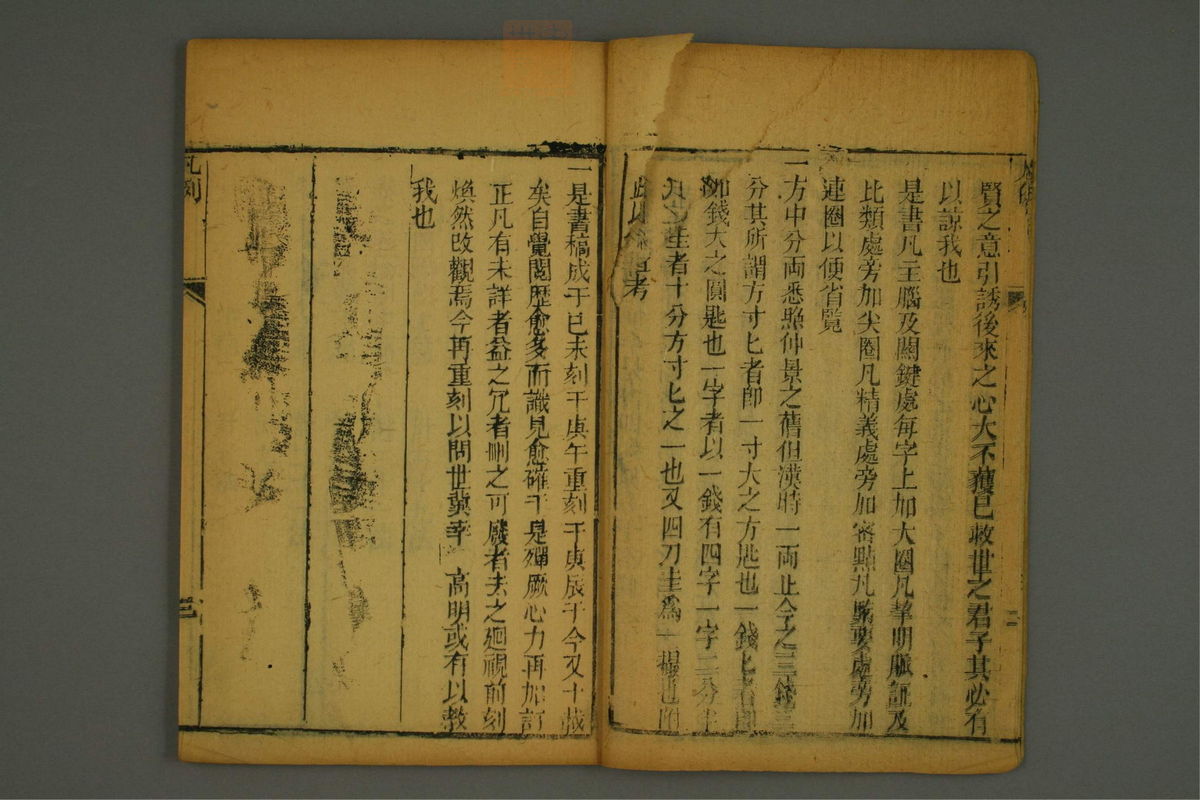 賢之意引誘後來之心大不獲已救世之君子其必有
以諒我也
是書凡主腦及關鍵處每字上加大圈凡挈明脈証及
比類處旁加尖圈凡精義處旁加密點凡緊要處旁加
連圈以便省覽
一方中分両悉照仲景之舊但漢時一両止今之三錢三
分其所謂方寸匕者即一寸大之方匙也一錢匕者即
如錢大之圓匙也一字者以一錢有四字一字二分半
刀圭者十分方寸匕之一也又四刀圭為一撮也附
此以考
一是書稿成于已未刻于庚午重刻于庚辰于今又十載
矣自覺閱歷愈多而識見愈確于是殫厥心力再加訂
正凡有未詳者益之冗者刪之可廢者去之廻視前刻
煥然改觀焉今再重刻以問世冀幸 高明或有以教
我也
凡例
三